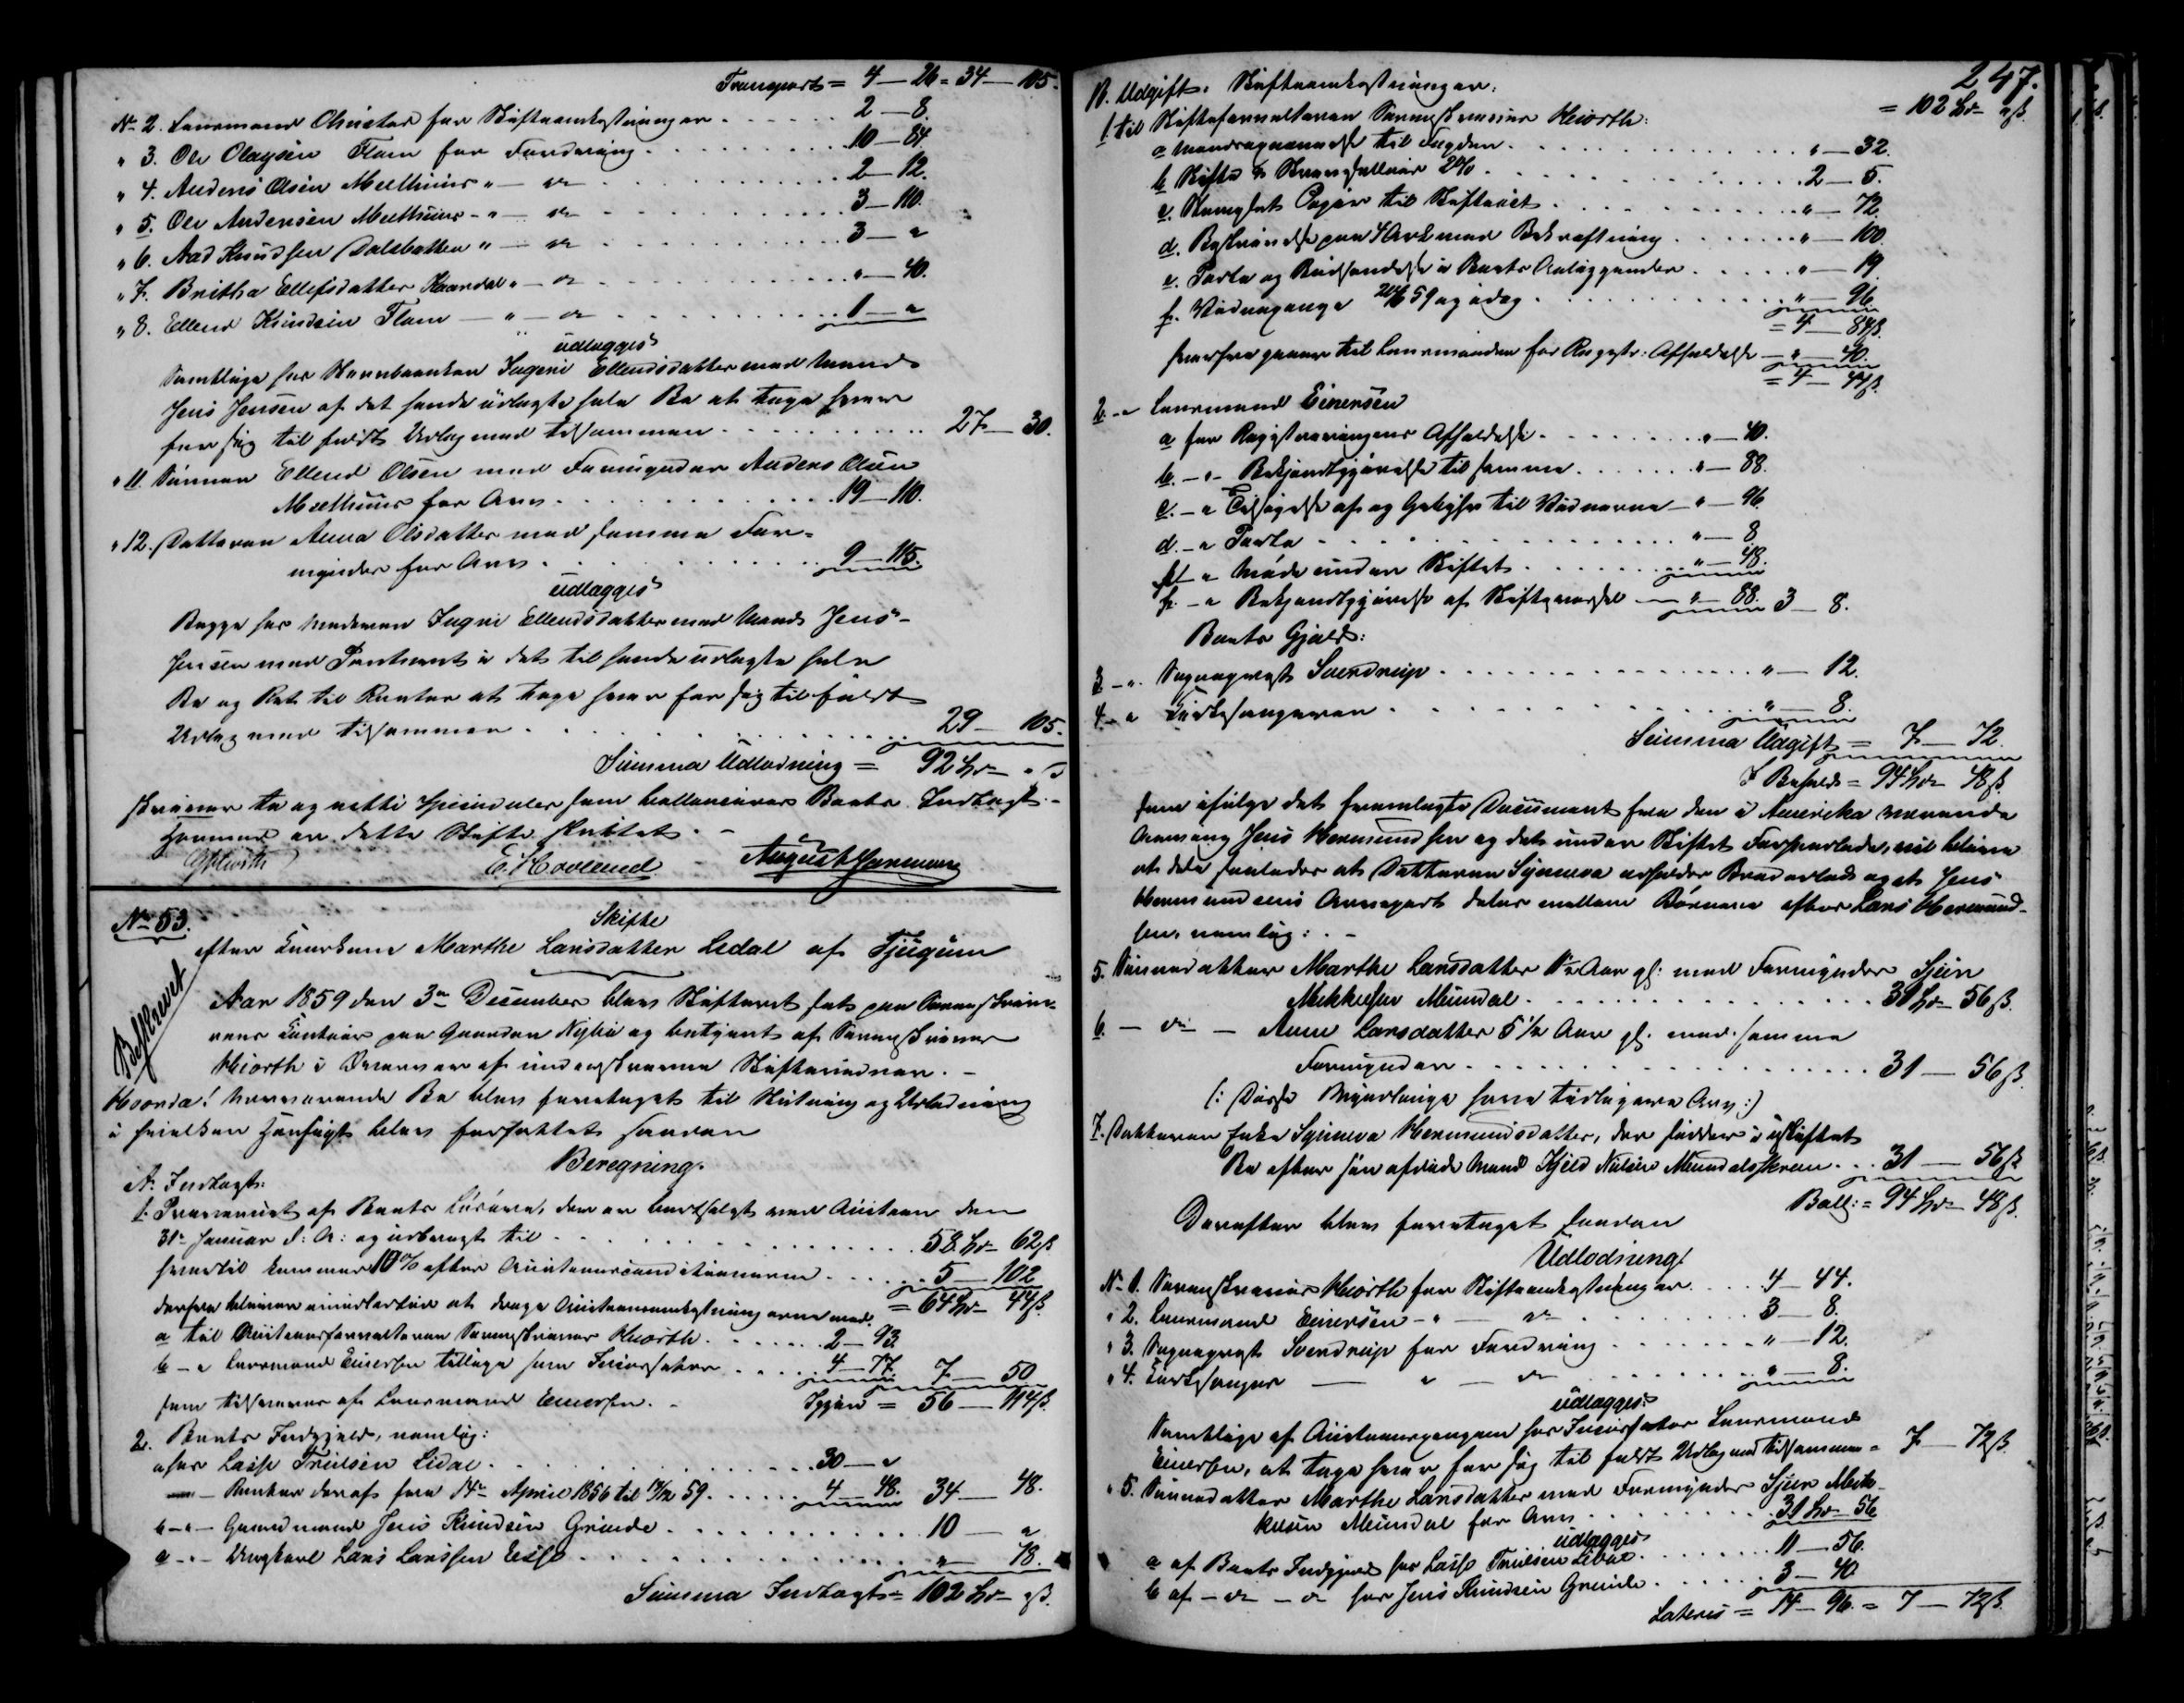 Transport = 4 — 26 = 34 — 105.
No 2. Lensmand for Skifteomkostninger . . . 2 — 8.
" 3. Ole Olaysen Flam for Fordring . . . 10 — 84.
" 4. Anders Olsen Melhuus " — do . . . 2 — 12.
" 5. Ole Andersen Melhuus - " — do . . . 3 — 110.
" 6. Aad Knudsen Dalsbotten " — do . . . 3 — "
" 7. Britha Ellefsdatter Haardal " — do . . . " — 40.
" 8. Ellend Knudsen Flam — " — do . . . 1 — "
udlægges
Samtlige hos Stervboenken Ingeri Ellendsdatter med Mand
Jens Jensen af det hende udlagte hele Bo at tage hver
for sig til fuldt Udlæg med tilsammen . . . 27 — 30.
" 11. Sønnen Ellend Olsen med Formynder Anders Olsen
Melhuus for Arv . . . 19 — 110.
" 12. Datteren Anna Olsdatter med samme For-
mynder for Arv . . . 9 — 115.
udlægges
Begge hos Moderen Ingeri Ellendsdatter med Mand Jens
Jensen med Panteret i det til hende udlagte hele
Bo og Ret til Renter at tage hver for sig til fuldt
Udlæg med tilsammen . . . 29 — 105.
Summa Udlodning = 92 Spd — " ß
skriver to og netti Speciedaler som ballancerer Boets Indtægt. -
Hermed er dette Skifte sluttet. -
GHiorth E. Hovland August Hermann
No 53.
Skifte
efter Enkekone Marthe Larsdatter Ledal af Tjugum
Beskrevet
Aar 1859 den 3de December blev Skifteret sat paa Sorenskrive-
rens Contoir paa Gaarden Nybø og betjent af Sorenskriver
Hiorth i Overvær af underskrevne Skiftevidner. -
Hvorda! nærværende Bo blev foretaget til Slutning og Udlodning
i hvilken Henseigt blev forfattet saadan
Beregning.
A. Indtægt:
1. Provenuet af Boets Løsøre, der er bortsolgt ved Auction den
31te Januar d: A: og udbragt til . . . 58 Spd 62 ß
hvortil kommer 10 % efter Auctionsconditionerne . . . 5 — 102
= 64 Spd 44 ß.
derfra bliver imidlertid at drage Auctionsomkostningerne med.
a til Auctionsforvalteren Sorenskriver Hiorth . . . 2 — 93
b - " Lensmand Einersen tillige som Incassator . . . 4 — 77. 7 — 50
som tilsvares af Lensmand Einersen. - Igjen = 56 — 114 ß.
2. Boets Indgjæld, nemlig:
a hos Lasse Truelsen Lidal . . . 30 — "
— Renter deraf fra 14de April 1856 til 14/10 59 . . . 4 — 48. 34 — 48.
b - " - Gaardmand Jens Knudsen Grinde . . . 10 — "
c - " - Ungkarl Lars Larssen Eesse . . . " — 78.
Summa Indtægt = 102 Spd " ß.
247.
B. Udgift. Skifteomkostninger.
= 102 Spd " ß.
1. til Skifteforvalteren Sorenskriver Hiorth:
a Mandsopnævnelse til Fogden . . . " — 32.
b Skifte & Skrivesallair 2% . . . 2 — 5.
c. Stemplet Papir til Skiftet . . . " — 72.
d. Beskrivelse paa 4 Ark med Bekræftning . . . " — 100.
e. Porto og Budsendelse i Boets Anliggender . . . " — 19
f. Vidnepenge 20/6 59 og idag . . . " — 96.
= 4 — 84 ß.
hvorfra gaaer til Lensmanden for Registr: Afholdelse — " — 40.
= 4 — 44 ß.
2. - " Lensmand Einersen
a for Registreringens Afholdelse . . . " — 40.
b. - " - Bekjendtgjørelse til samme . . . " — 88.
c. - " Tilsigelse af og Gebyhr til Vidnerne — " — 96
d. - " Porto . . . " — 8
e - " Møde under Skiftet . . . " — 48.
f. - " Bekjendtgjørelse af Skiftevarsel — " — 88. 3 — 8.
Boets Gjæld:
3 - ". Sogneprest Svendrup . . . " — 12.
4 - " Kirkesangeren . . . " — 8.
Summa Udgift = 7 — 72.
I Behold = 94 Spd 48 ß
som ifølge det fremlagte Document fra den i Amerika værende
Arving Jens Hermundsen og det under Skiftet Forhandlede, vil blive
at dele saaledes at Datteren Synneva erholder Broderlod og at Jens
Hermundsens Arvepart deles mellem Børnene efter Lars Hermund-
sen, nemlig: . -
5. Sønnedatter Marthe Larsdatter Aar gl: med Formynder Sjur
Mikkelsen Mundal . . . 31 Spd 56 ß.
6. — do — Anne Larsdatter 5 1/2 Aar gl. med samme
Formynder . . . 31 — 56 ß.
(: Disse Myndlinge have tidligere Arv :)
7. Datteren Enke Synneva Hermundsdatter, der sidder i uskiftet
Bo efter sin afdøde Mand Kjeld Nielsen Mundalsskreen . . . 31 — 56 ß
Ball: = 94 Spd 48 ß.
Derefter blev foretaget saadan
Udlodning.
No 1. Sorenskriver Hiorth for Skifteomkostninger . . . 4 — 44.
" 2. Lensmand Einersen - " — do . . . 3 — 8.
" 3. Sogneprest Svendrup for Fordring . . . " — 12.
" 4. Kirkesanger — " — do . . . " — 8.
udlægges
Samtlige af Auctionspengene hos Incassator Lensmand
Einersen, at tage hver for sig til fuldt Udlæg med tilsammen = 7 — 72 ß.
" 5. Sønnedatter Marthe Larsdatter med Formynder Sjur Mik-
kelsen Mundal for Arv . . . 31 Spd 56
udlægges
a af Boets Indgjæld hos Lasse Truelsen Lidal . . . 11 — 56.
b af - do - do hos Jens Knudsen Grinde . . . 3 — 40
Lateris = 14 — 96. = 7 — 72 ß.